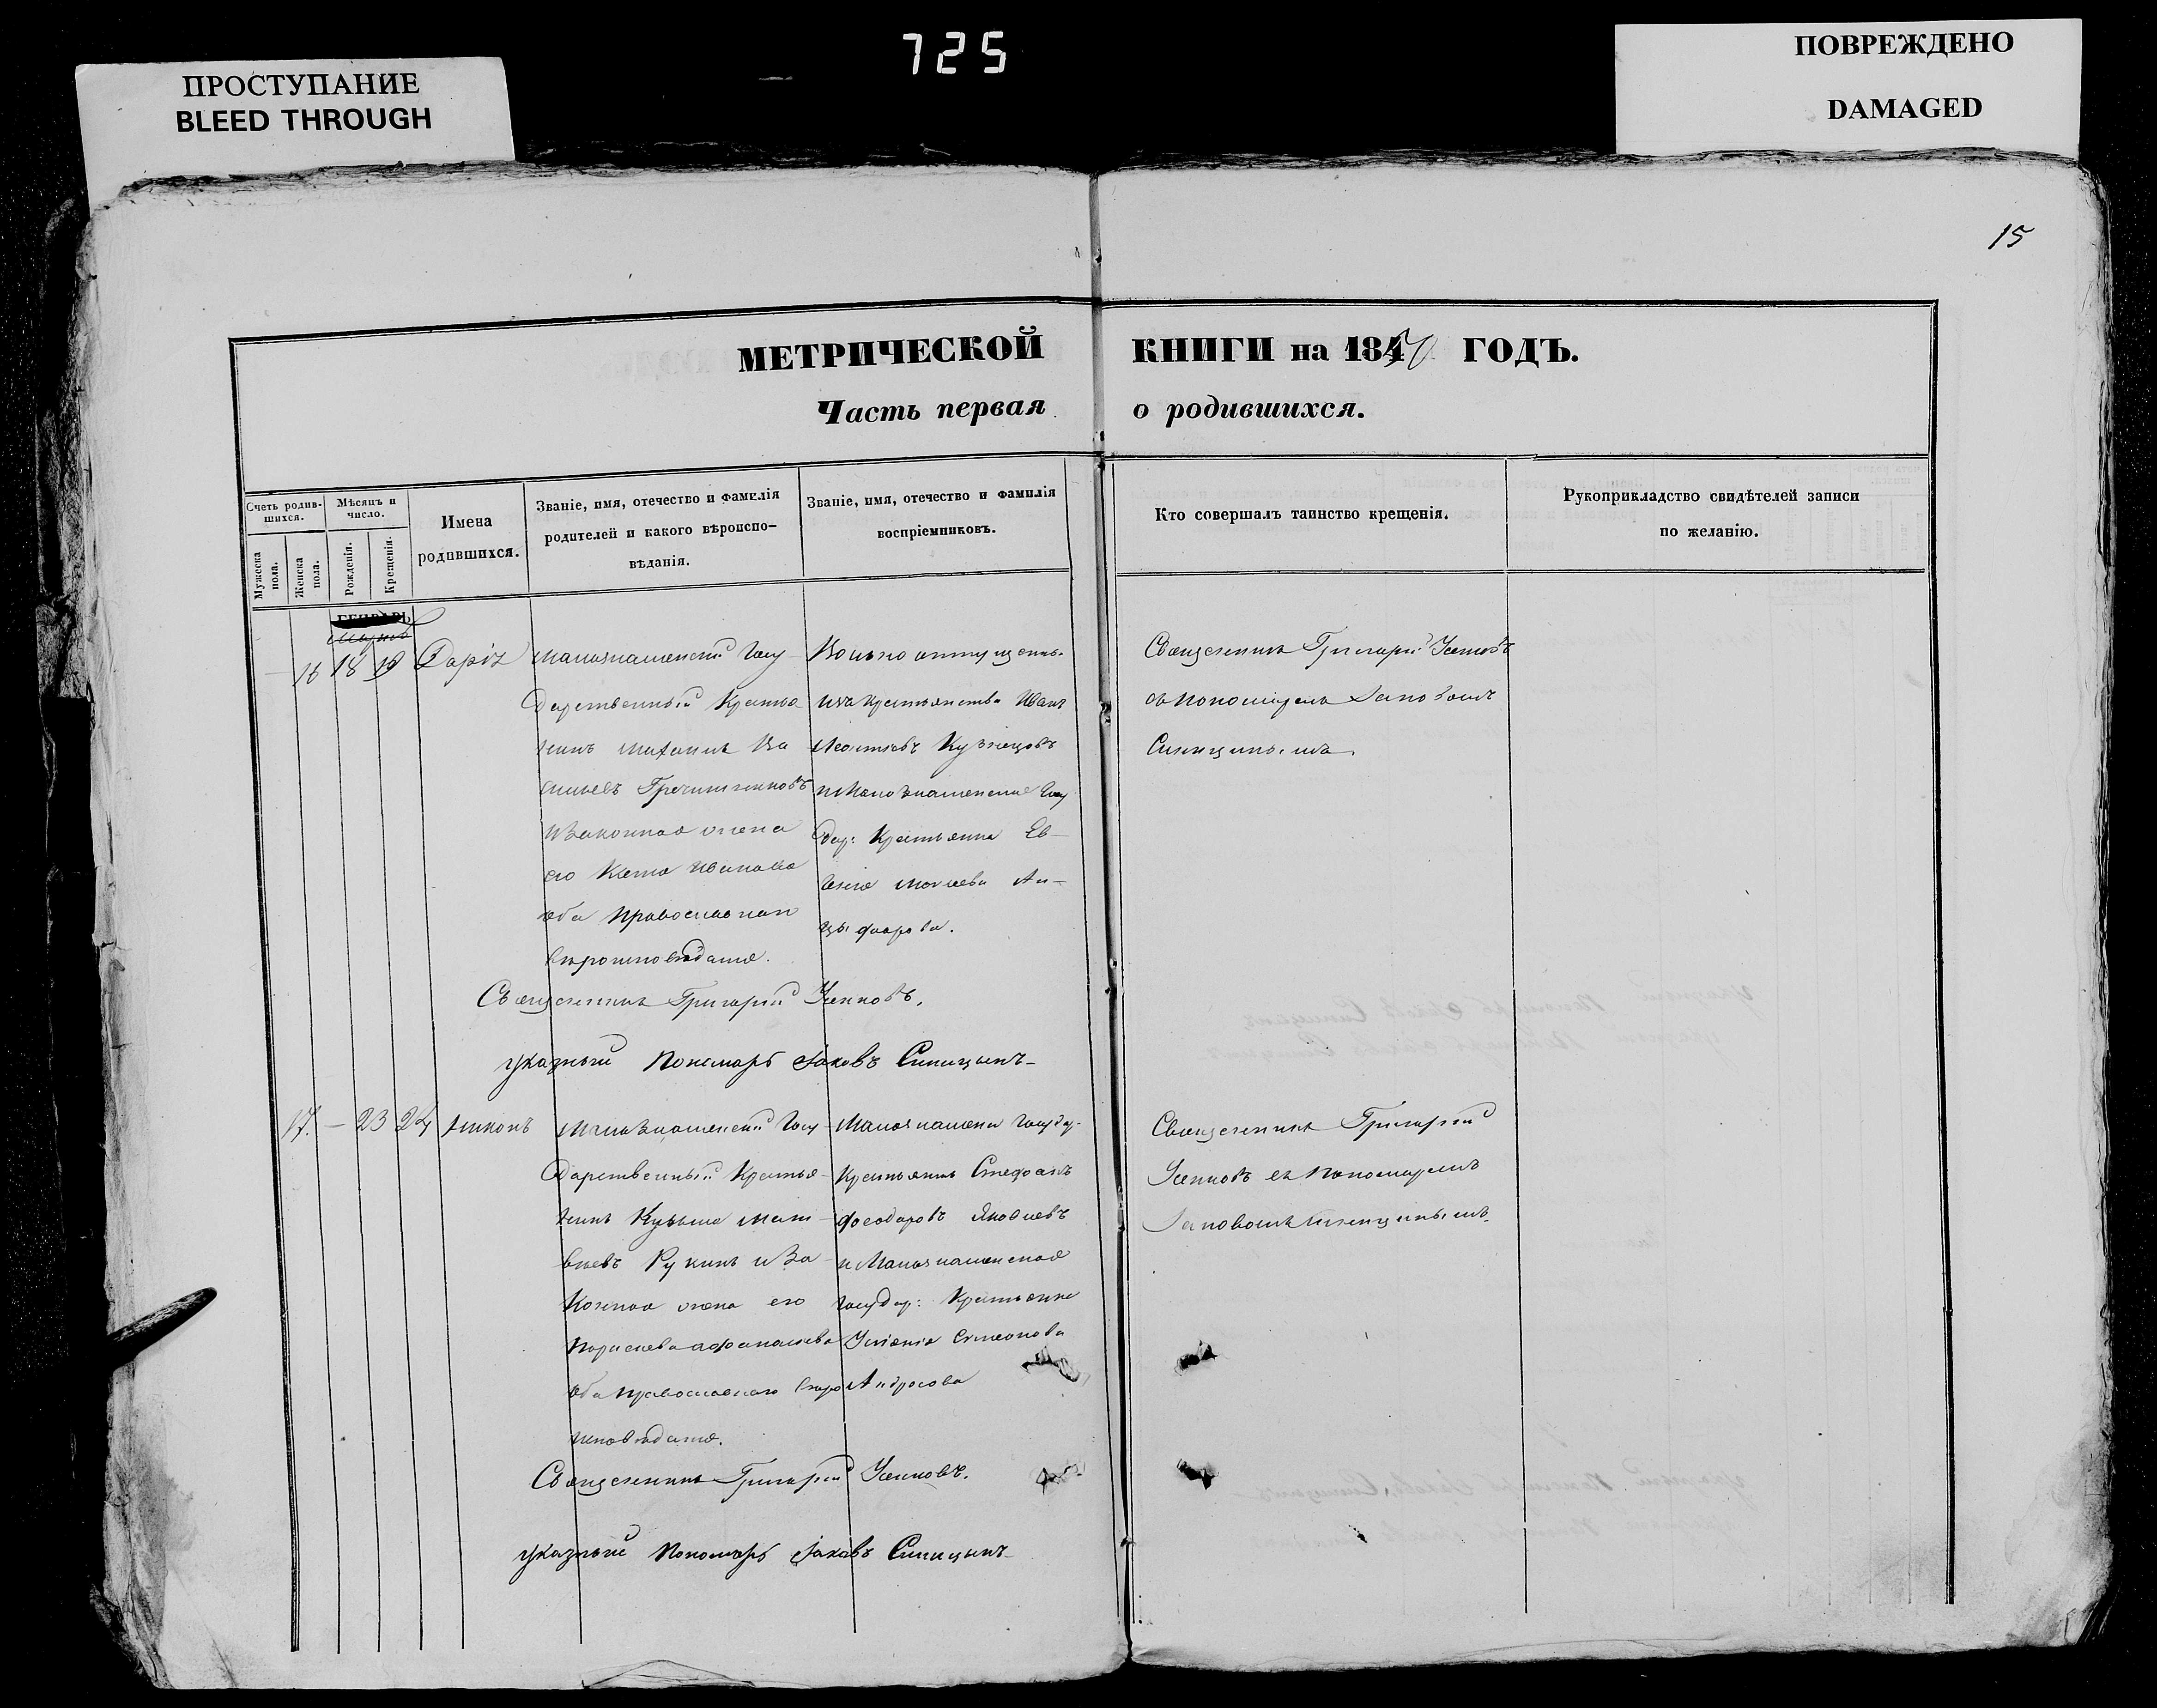 ПРОСТУПАНИЕ
BLEED THROUGH
725
ПОВРЕЖДЕНО
DAMAGED
15
МЕТРИЧЕСКОЙ КНИГИ на 1850 ГОДЪ.
Часть первая о родившихся.
Счетъ родившихся.
Мужеска пола.
Женска пола.
Мѣсяцъ и число.
Рожденія.
Крещенія.
Имена родившихся.
Званіе, имя, отечество и фамилія родителей и какого вѣроисповѣданія.
Званіе, имя, отечество и фамилія воспріемниковъ.
Кто совершалъ таинство крещенія.
Рукоприкладство свидѣтелей записи по желанію.
16 18 19 Дарія
Малознаменский Госу
дарственный Крестья
нинъ Михаилъ Ва
сильевъ Гречишниковъ
и Законная жена
его Иванова
оба Православнаго
вѣроисповѣданія.
Вольно отпущенны
изъ крестьянства Иванъ
Леонтьевъ Кузнецовъ
и Малознаменская Госу
дар: Крестьянка Ев
генія Моисеева Ан
цыфорова.
Священникъ Григорій Усиновъ
съ Пономаремъ Іаковомъ
Синицынымъ.
Священникъ Григорій Усиновъ.
указный Пономарь Іаковъ Синицынъ
17. — 23 24 Никонъ
Малознаменский Госу
дарственный Крестья
нинъ Кузьма Мат
вѣевъ Рукинъ и За
конная жена его
Афанасьева
оба православнаго вѣро
исповѣданія.
Малознаменск Государ
Крестьянинъ Стефанъ
Феодоровъ Яковлевъ
и Малознаменская
Государ: Крестьянка
Уліанія Симеонова
Андросова
Священникъ Григорій
Усиновъ съ Пономаремъ
Іаковомъ Синицынымъ.
Священникъ Григорій Усиновъ.
указный Пономарь Іаковъ Синицынъ